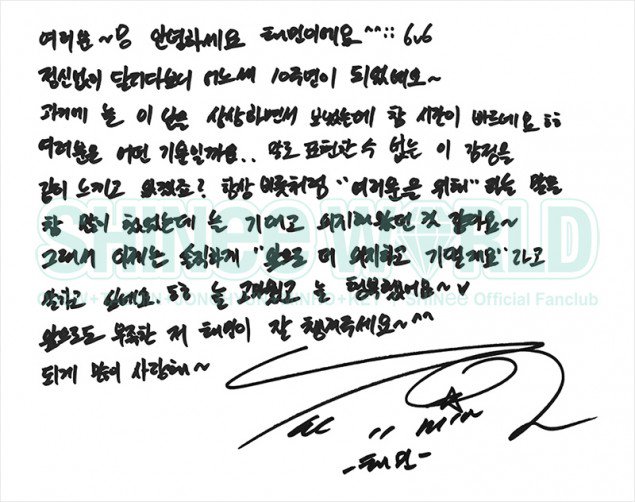 여러분~ 안녕하세요 태민이에요 ^^;; 6v6
정신없이 달리다보니 어느새 10주년이 되었네요~
과거에 늘 이 날을 상상하면서 보냈는데 참 시간이 빠르네요 ㅎㅎ
여러분은 어떤 기분일까요.. 말로 표현할 수 없는 이 감정을
같이 느끼고 있겠죠? 항상 버릇처럼 "여러분을 위해" 하는 말을
참 많이 했었는데 늘 기대고 의지해왔던 것 같아요~
SHINee WORLD
그래서 이제는 솔직하게 "앞으로 더 의지하고 기댈게요" 라고
말하고 싶네요 늘 고마웠고 늘 행복했어요~ ♥
SHINee Official Fanclub
앞으로도 부족한 저 태민이 잘 챙겨주세요~ ^^
되게 많이 사랑해~
-태민-